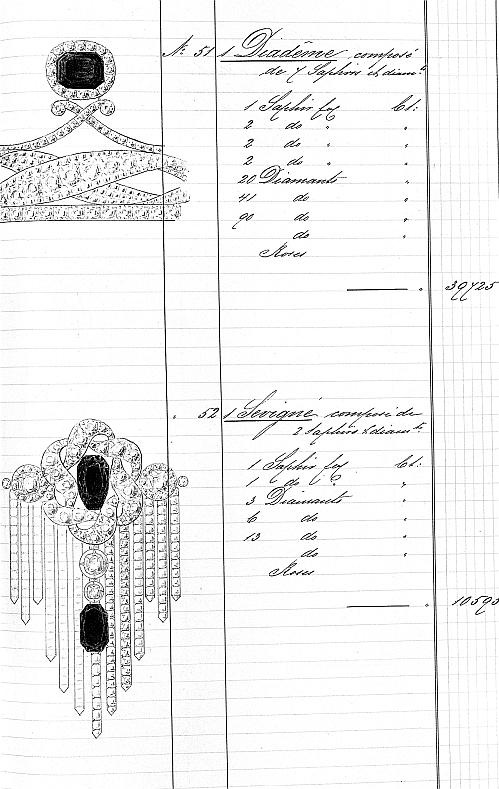 No. 51 1 Diadème composé
de 7 Saphirs et diamts
1 Saphir Ct:
2 do " "
2 do " "
2 do " "
20 Diamants "
41 do "
90 do "
do "
Roses
— " 39725
" 52 1 Sévigné composé de
2 Saphirs & diamts
1 Saphir Ct:
1 do " "
3 Diamants "
6 do "
13 do "
do "
Roses
— " 10590